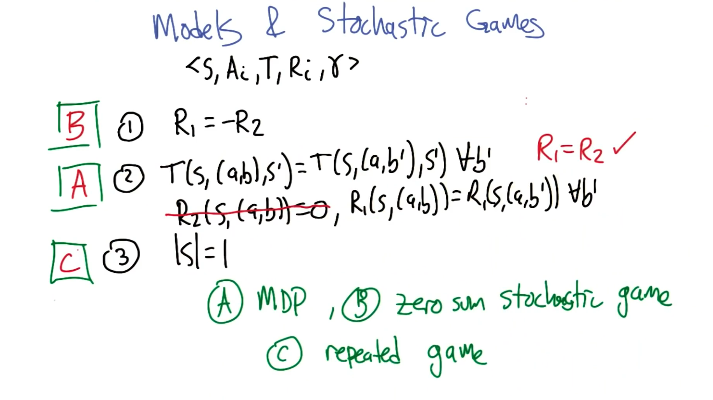 Models & Stochastic Games
<S, Ai, T, Ri, γ>
B ① R₁ = -R₂
R₁ = R₂ ✓
A ② T(s,(a,b),s') = T(s,(a,b'),s') ∀b'
R₂(s,(a,b)) = 0, R₁(s,(a,b)) = R₁(s,(a,b')) ∀b'
C ③ |S| = 1
Ⓐ MDP, Ⓑ zero sum stochastic game
Ⓒ repeated game